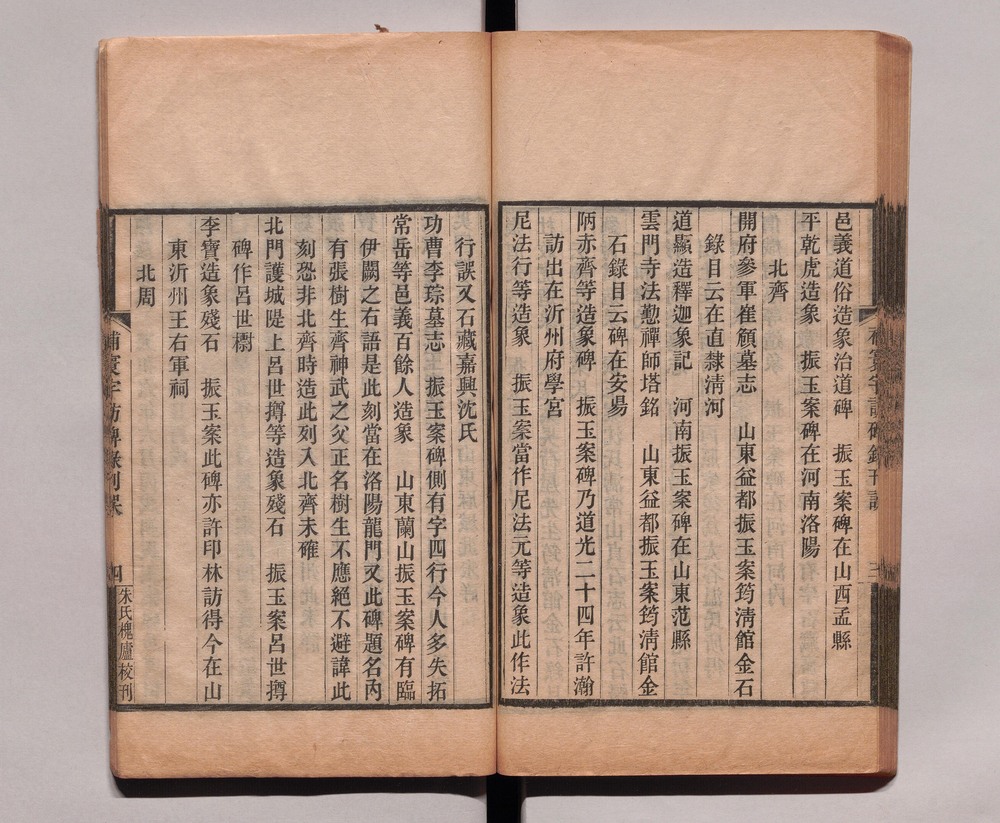 邑義道俗造象治道碑　振玉案碑在山西孟縣
平乾虎造象　振玉案碑在河南洛陽
北齊
開府參軍崔頠墓志　山東益都振玉案筠淸館金石
錄目云在直隸淸河
道顯造釋迦象記　河南振玉案碑在山東范縣
雲門寺法懃禪師塔銘　山東益都振玉案筠淸館金
石錄目云碑在安昜
陃赤齊等造象碑　振玉案碑乃道光二十四年許瀚
訪出在沂州府學宮
尼法行等造象　振玉案當作尼法元等造象此作法
補寰宇訪碑錄刊誤
行誤又石藏嘉興沈氏
功曹李琮墓志　振玉案碑側有字四行今人多失拓
常岳等邑義百餘人造象　山東蘭山振玉案碑有臨
伊闕之右語是此刻當在洛陽龍門又此碑題名內
有張樹生齊神武之父正名樹生不應絕不避諱此
刻恐非北齊時造此列入北齊未確
北門護城隄上呂世摶等造象殘石　振玉案呂世摶
碑作呂世檦
李寶造象殘石　振玉案此碑亦許印林訪得今在山
東沂州王右軍祠
北周
補寰宇訪碑錄刊誤
四
朱氏槐廬校刊